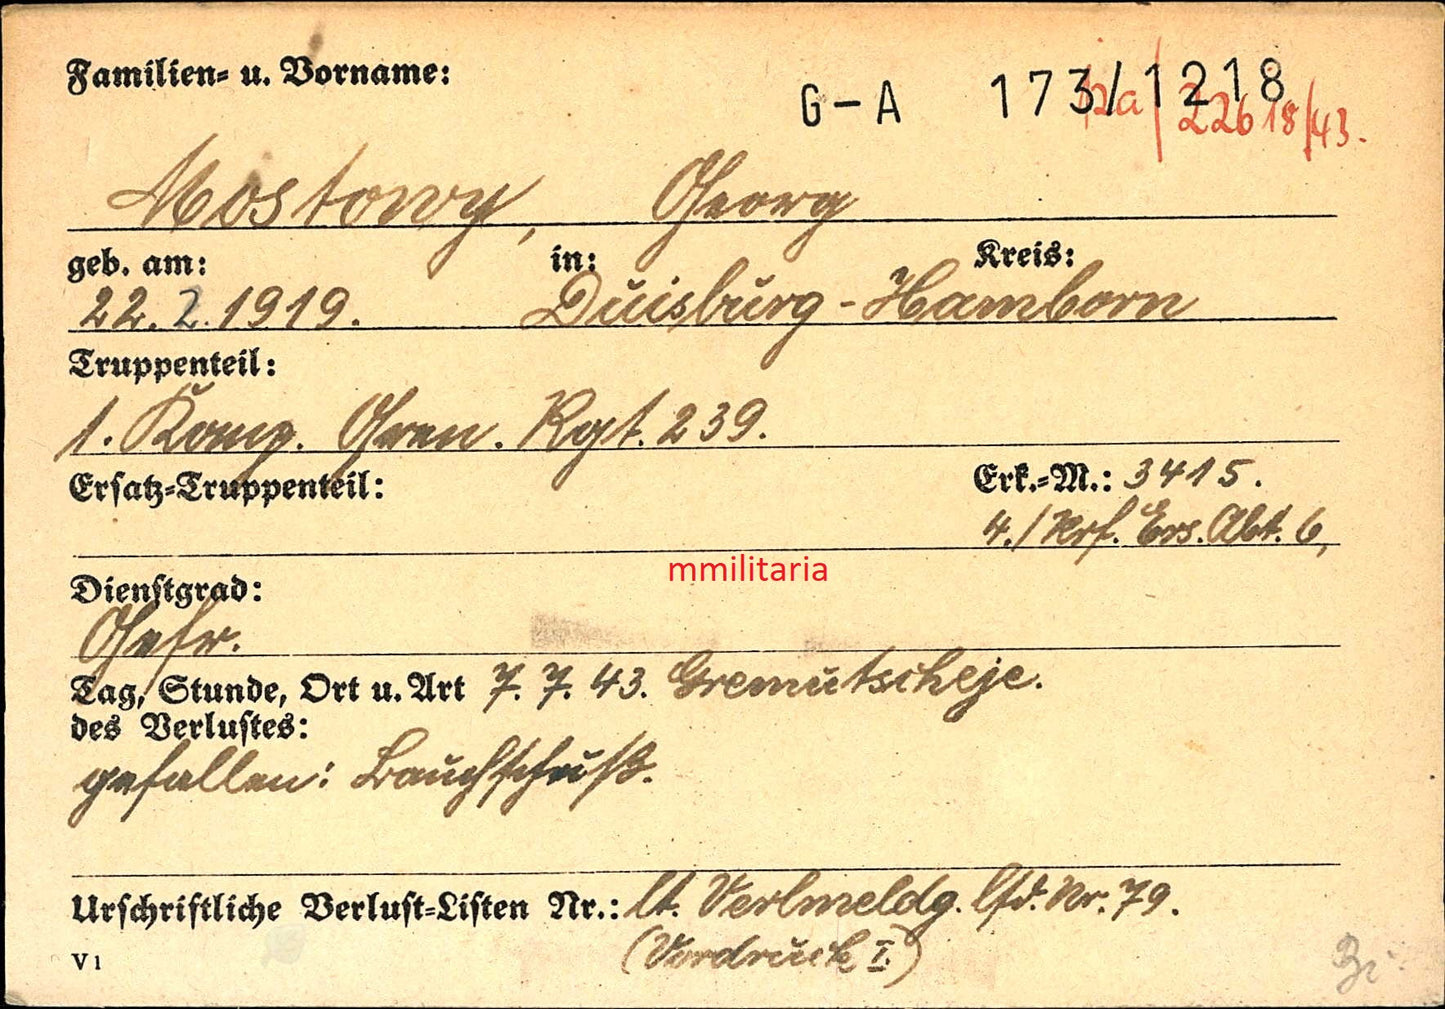 Familien- u. Vorname:
G-A 173/1218
22618/43.
Mostowy, Georg
geb. am: in: Kreis:
22. 2. 1919. Duisburg-Hamborn
Truppenteil:
1. Komp. Gren. Rgt. 239.
Ersatz-Truppenteil: Erk.-M.: 3415.
4./Krf. Ers. Abt. 6,
mmilitaria
Dienstgrad:
Gefr.
Tag, Stunde, Ort u. Art 7. 7. 43. Gremutscheje.
des Verlustes:
gefallen: Bauchschuß.
Urschriftliche Verlust-Listen Nr.: lt. Verlmeldg. lfd. Nr. 79.
(Vordruck I.)
V 1